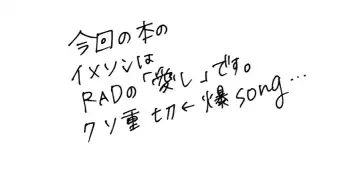 今回の本の
イメソンは
RADの「愛し」です。
クソ重切←爆song…